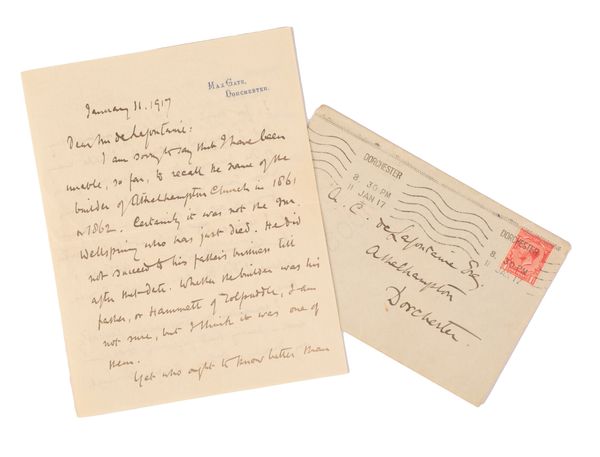 MAX GATE,
DORCHESTER.
January 11. 1917
Dear Mr de Lafontaine:
I am sorry to say that I have been
unable, so far, to recall the name of the
builder of Athelhampton Church in 1861
or 1862. Certainly it was not the Mr.
Wellspring who has just died. He did
not succeed to his father's business till
after that date. Whether the builder was his
father, or Hammett of Tolpuddle, I am
not sure, but I think it was one of
them.
Yet who ought to know better than
DORCHESTER
8. 30 PM
11 JAN 17
DORCHESTER
8. 30 PM
11 JAN 17
A. C. de Lafontaine Esq.
Athelhampton
Dorchester.